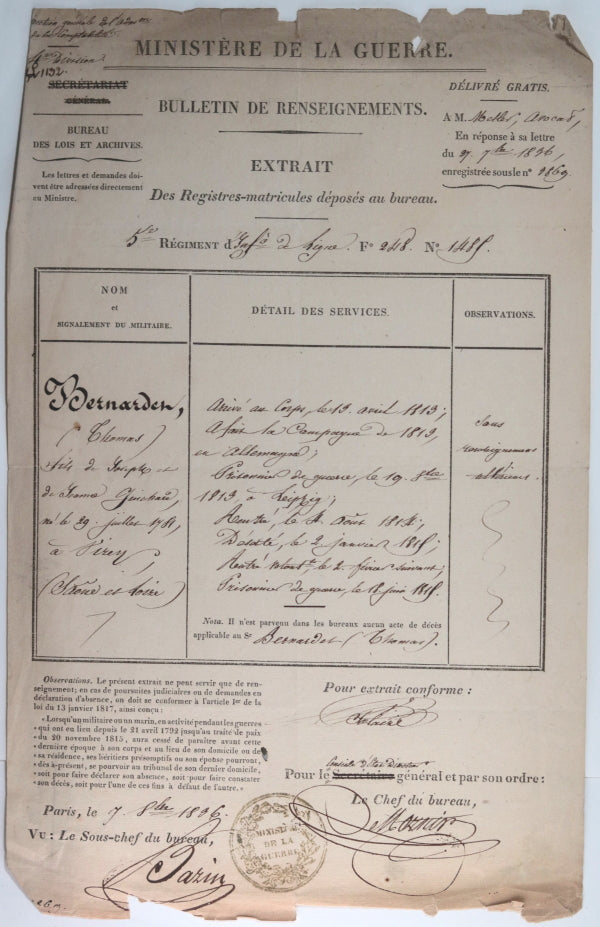 MINISTÈRE DE LA GUERRE.
Division
1132.
SECRÉTARIAT
GÉNÉRAL.
BUREAU
DES LOIS ET ARCHIVES.
Les lettres et demandes doi-
vent être adressées directement
au Ministre.
BULLETIN DE RENSEIGNEMENTS.
EXTRAIT
Des Registres-matricules déposés au bureau.
DÉLIVRÉ GRATIS.
A M. avocat,
En réponse à sa lettre
du 27 7bre 1836,
enregistrée sous le n° 9869
5e RÉGIMENT d'Infie de Ligne. F° 248. N° 1485.
NOM
et
SIGNALEMENT DU MILITAIRE.
DÉTAIL DES SERVICES.
OBSERVATIONS.
Bernardet,
(Thomas)
fils de Joseph et
de
né le 29 juillet 1781,
à
(Saône et Loire)
Arrivé au Corps, le 13 avril 1813;
A fait la Campagne de 1813,
en Allemagne;
Prisonnier de guerre le 19 8bre
1813, à Leipzig;
Rentré, le août 1814;
Déserté, le 2 janvier 1815;
Rentré volontt le 2 suivant;
Prisonnier de guerre, le 18 juin 1815.
Sans
renseignemens
ultérieurs.
Nota. Il n'est parvenu dans les bureaux aucun acte de décès
applicable au Sr Bernardet (Thomas).
Observations. Le présent extrait ne peut servir que de ren-
seignement; en cas de poursuites judiciaires ou de demandes en
déclaration d'absence, on doit se conformer à l'article 1er de la
loi du 13 janvier 1817, ainsi conçu:
« Lorsqu'un militaire ou un marin, en activité pendant les guerres
« qui ont eu lieu depuis le 21 avril 1792 jusqu'au traité de paix
« du 20 novembre 1815, aura cessé de paraître avant cette
« dernière époque à son corps et au lieu de son domicile ou de
« sa résidence, ses héritiers présomptifs ou son épouse pourront,
« dès-à-présent, se pourvoir au tribunal de son dernier domicile,
« soit pour faire déclarer son absence, soit pour faire constater
« son décès, soit pour l'une de ces fins à défaut de l'autre. »
Pour extrait conforme :
Pour le Secrétaire général et par son ordre:
Le Chef du bureau,
Paris, le 7 8bre 1836.
VU : Le Sous-chef du bureau,
Bazin
MINISTÈRE
DE LA
GUERRE